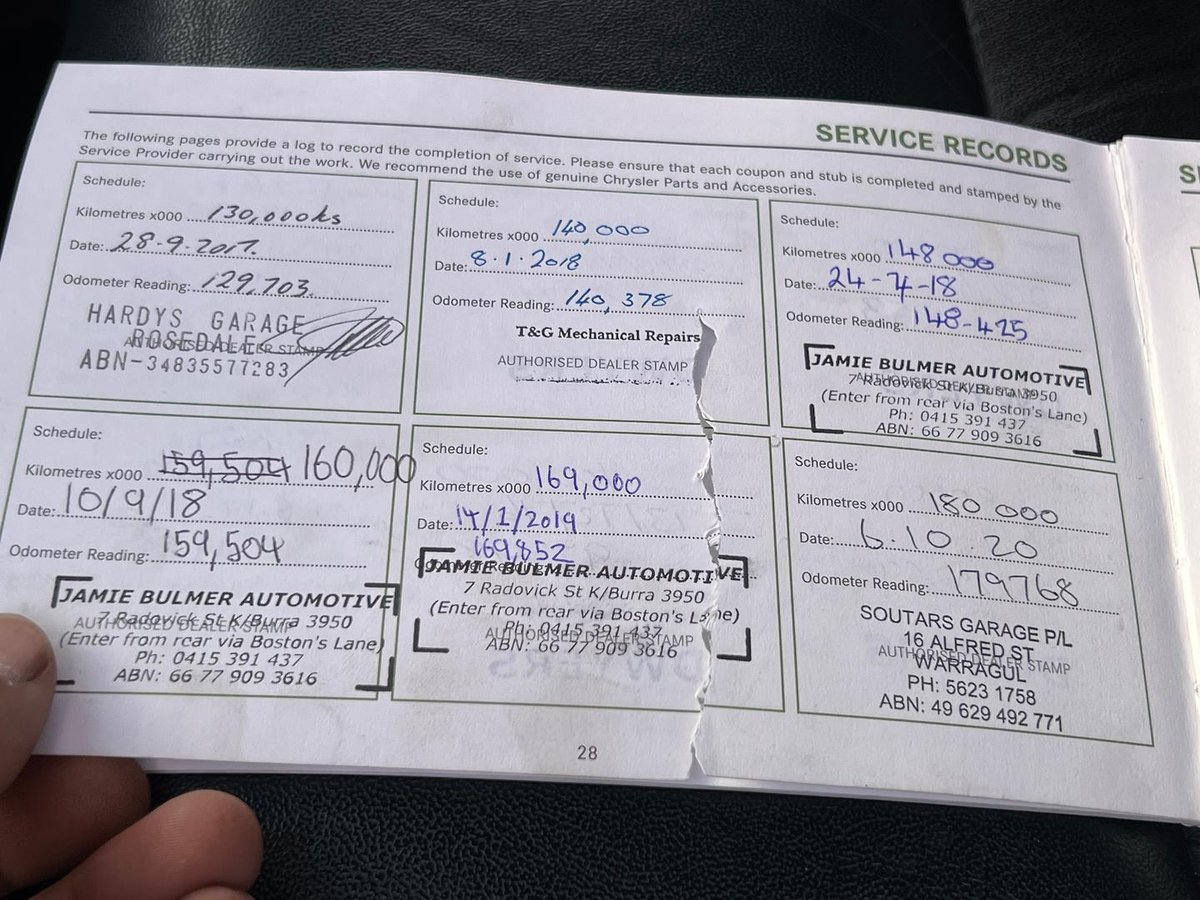 SERVICE RECORDS
The following pages provide a log to record the completion of service. Please ensure that each coupon and stub is completed and stamped by the
Service Provider carrying out the work. We recommend the use of genuine Chrysler Parts and Accessories.
Schedule:
Kilometres x000 130,000ks
Date: 28-9-2017.
Odometer Reading: 129,703.
HARDYS GARAGE
ROSEDALE
AUTHORISED DEALER STAMP
ABN-34835577283
Schedule:
Kilometres x000 140,000
Date: 8.1.2018
Odometer Reading: 140,378
T&G Mechanical Repairs
AUTHORISED DEALER STAMP
Schedule:
Kilometres x000 148000
Date: 24-4-18
Odometer Reading: 148-425
JAMIE BULMER AUTOMOTIVE
AUTHORISED DEALER STAMP
7 Radovick St K/Burra 3950
(Enter from rear via Boston's Lane)
Ph: 0415 391 437
ABN: 66 77 909 3616
Schedule:
Kilometres x000 159,504 160,000
Date: 10/9/18
Odometer Reading: 159,504
JAMIE BULMER AUTOMOTIVE
7 Radovick St K/Burra 3950
AUTHORISED DEALER STAMP
(Enter from rear via Boston's Lane)
Ph: 0415 391 437
ABN: 66 77 909 3616
Schedule:
Kilometres x000 169,000
Date: 14/1/2019
169,852
Odometer Reading:
JAMIE BULMER AUTOMOTIVE
7 Radovick St K/Burra 3950
(Enter from rear via Boston's Lane)
Ph: 0415 391 437
AUTHORISED DEALER STAMP
ABN: 66 77 909 3616
Schedule:
Kilometres x000 180 000
Date: 6.10.20
Odometer Reading: 179768
SOUTARS GARAGE P/L
16 ALFRED ST
AUTHORISED DEALER STAMP
WARRAGUL
PH: 5623 1758
ABN: 49 629 492 771
28